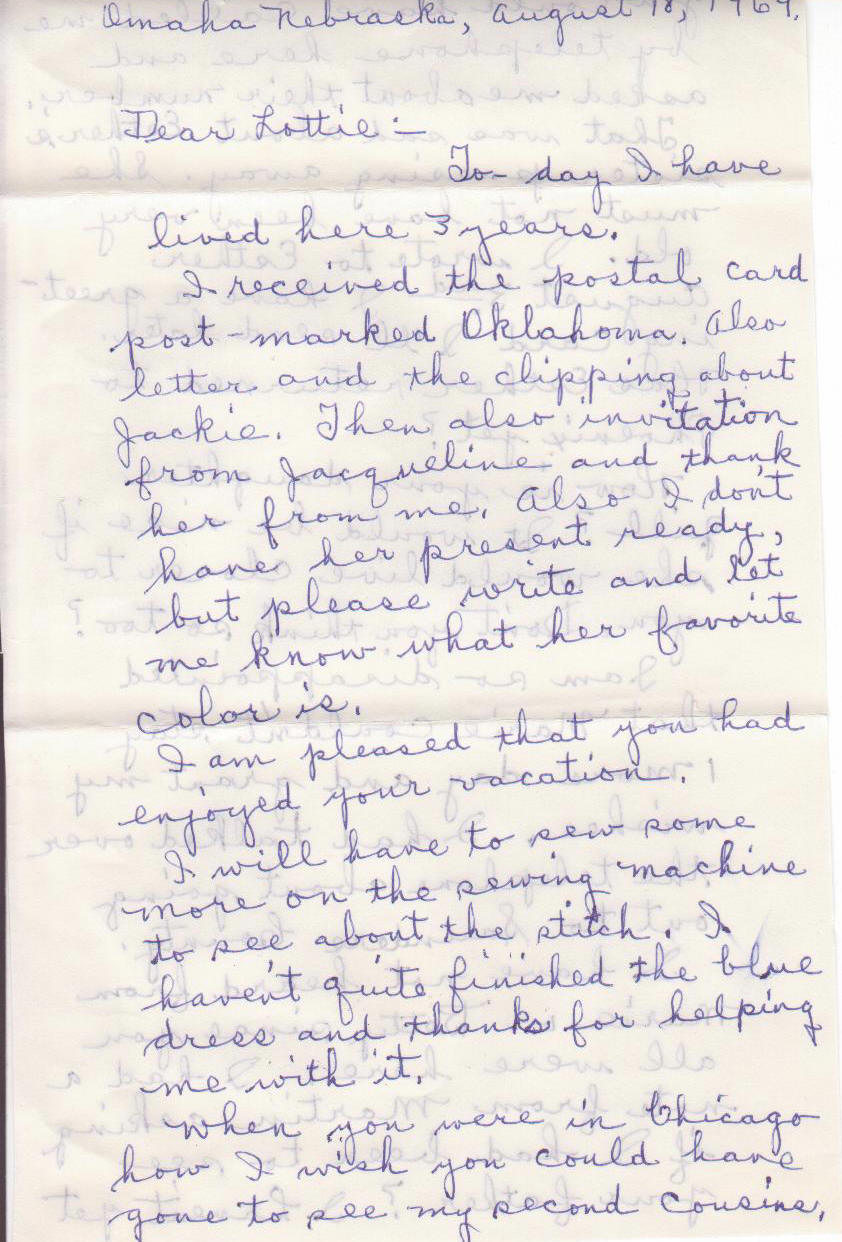 Omaha Nebraska, August 18, 1969.
Dear Lottie:-
To-day I have
lived here 3 years.
I received the postal card
post-marked Oklahoma. Also
letter and the clipping about
Jackie. Then also invitation
from Jacqueline and thank
her from me. Also I don't
have her present ready,
but please write and let
me know what her favorite
color is.
I am pleased that you had
enjoyed your vacation.
I will have to sew some
more on the sewing machine
to see about the stitch. I
haven't quite finished the blue
dress and thanks for helping
me with it.
When you were in Chicago
how I wish you could have
gone to see my second cousins,